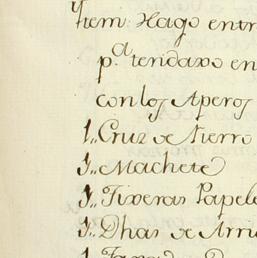 Item: Hago entr
pa tendaxo en
con los Aperos
1,, Cruz de Fierro
1,, Machete
1,, Tixeras Papele
1,, Dhas de Arri